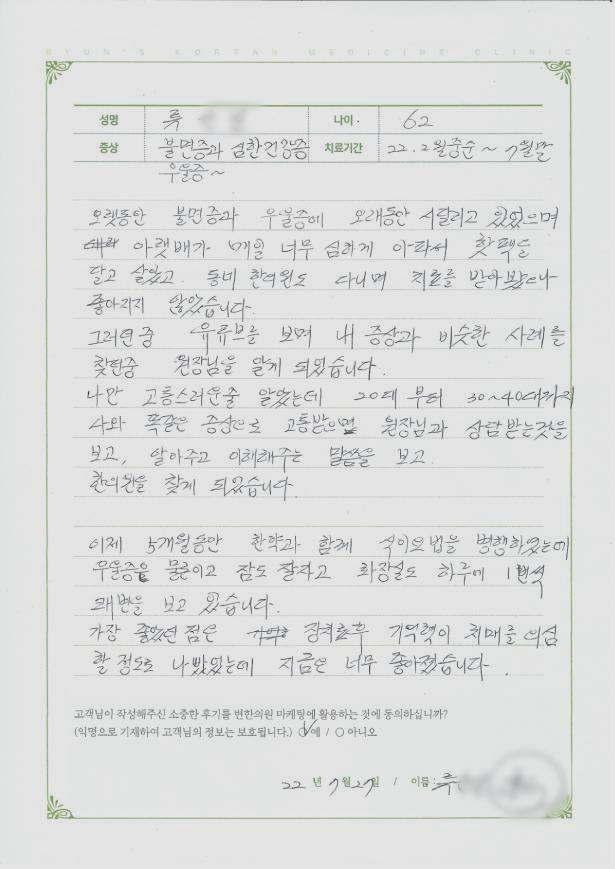 BYUN'S KOREAN MEDICINE CLINIC
성명 류 나이 · 62
증상 불면증과 심한건강증 치료기간 22.2월중순 ~ 7월말
우울증~
오랫동안 불면증과 우울증에 오래동안 시달리고 있었으며
아랫배가 매일 너무 심하게 아파서 핫팩을
달고 살았고. 동네 한의원도 다니며 치료를 받아봤으나
좋아지지 않았습니다.
그러던중 유튜브를 보며 내 증상과 비슷한 사례를
찾던중 원장님을 알게 되었습니다.
나만 고통스러운줄 알았는데 20대 부터 30~40대까지
나와 똑같은 증상으로 고통받으며 원장님과 상담받는것을
보고, 알아주고 이해해주는 말씀을 보고.
한의원을 찾게 되었습니다.
이제 5개월동안 한약과 함께 식이요법을 병행하였는데
우울증은 물론이고 잠도 잘자고 화장실도 하루에 1번씩
쾌변을 보고 있습니다.
가장 좋았던 점은 장치료후 기억력이 치매를 의심
할 정도로 나빴었는데 지금은 너무 좋아졌습니다.
고객님이 작성해주신 소중한 후기를 변한의원 마케팅에 활용하는 것에 동의하십니까?
(익명으로 기재하여 고객님의 정보는 보호됩니다.) ○ 예 / ○ 아니오
22 년 7월 27일 / 이름 : 류